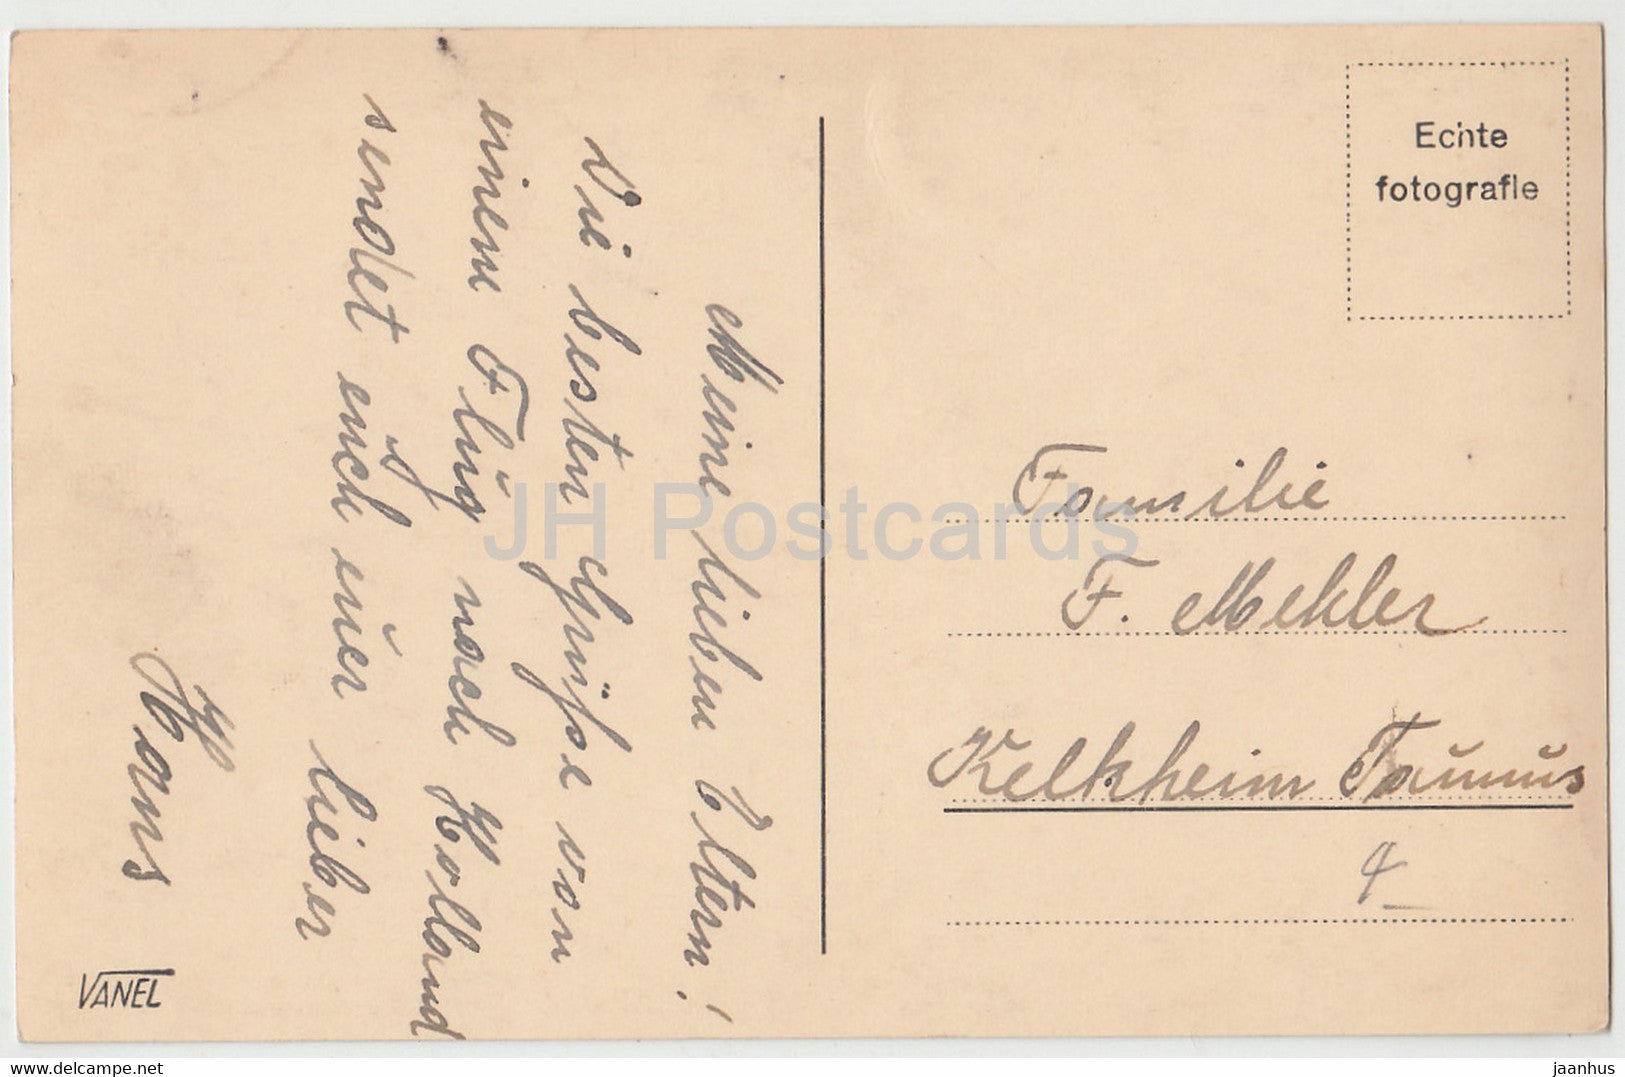 Meine lieben Eltern!
Die besten Grüsse von
einem Flug nach Holland
sendet euch euer lieber
Hans
VANEL
Echte
fotografie
Familie
F. Mehler
Kelkheim Taunus
JH Postcards
www.delcampe.net
jaanhus